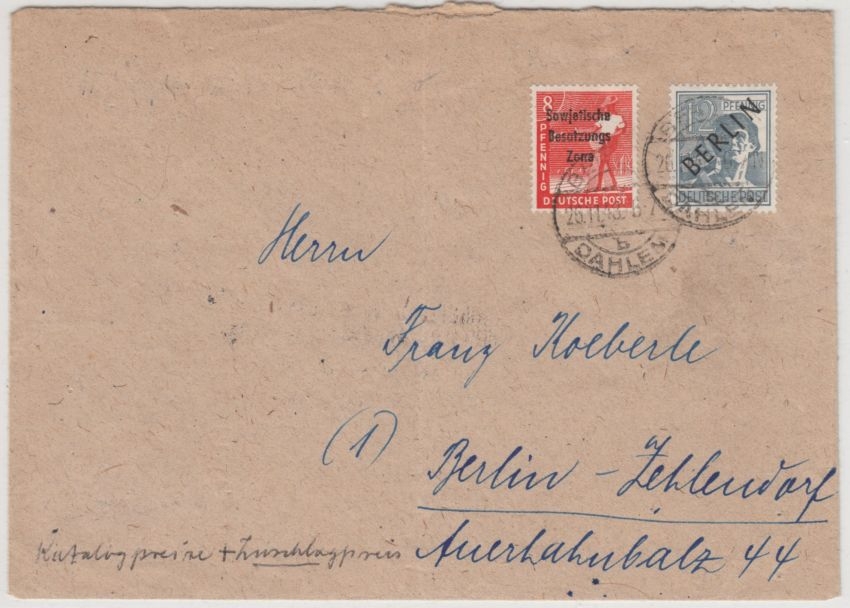 8
PFENNIG
Sowjetische
Besatzungs
Zone
DEUTSCHE POST
12 PFENNIG
BERLIN
DEUTSCHE POST
26.11.48
b
DAHLEM
26
DAHLEM
Herrn
Franz Koeberle
(1) Berlin - Zehlendorf
Auerhahnbalz 44
Katalogpreise + Zuschlagpreis